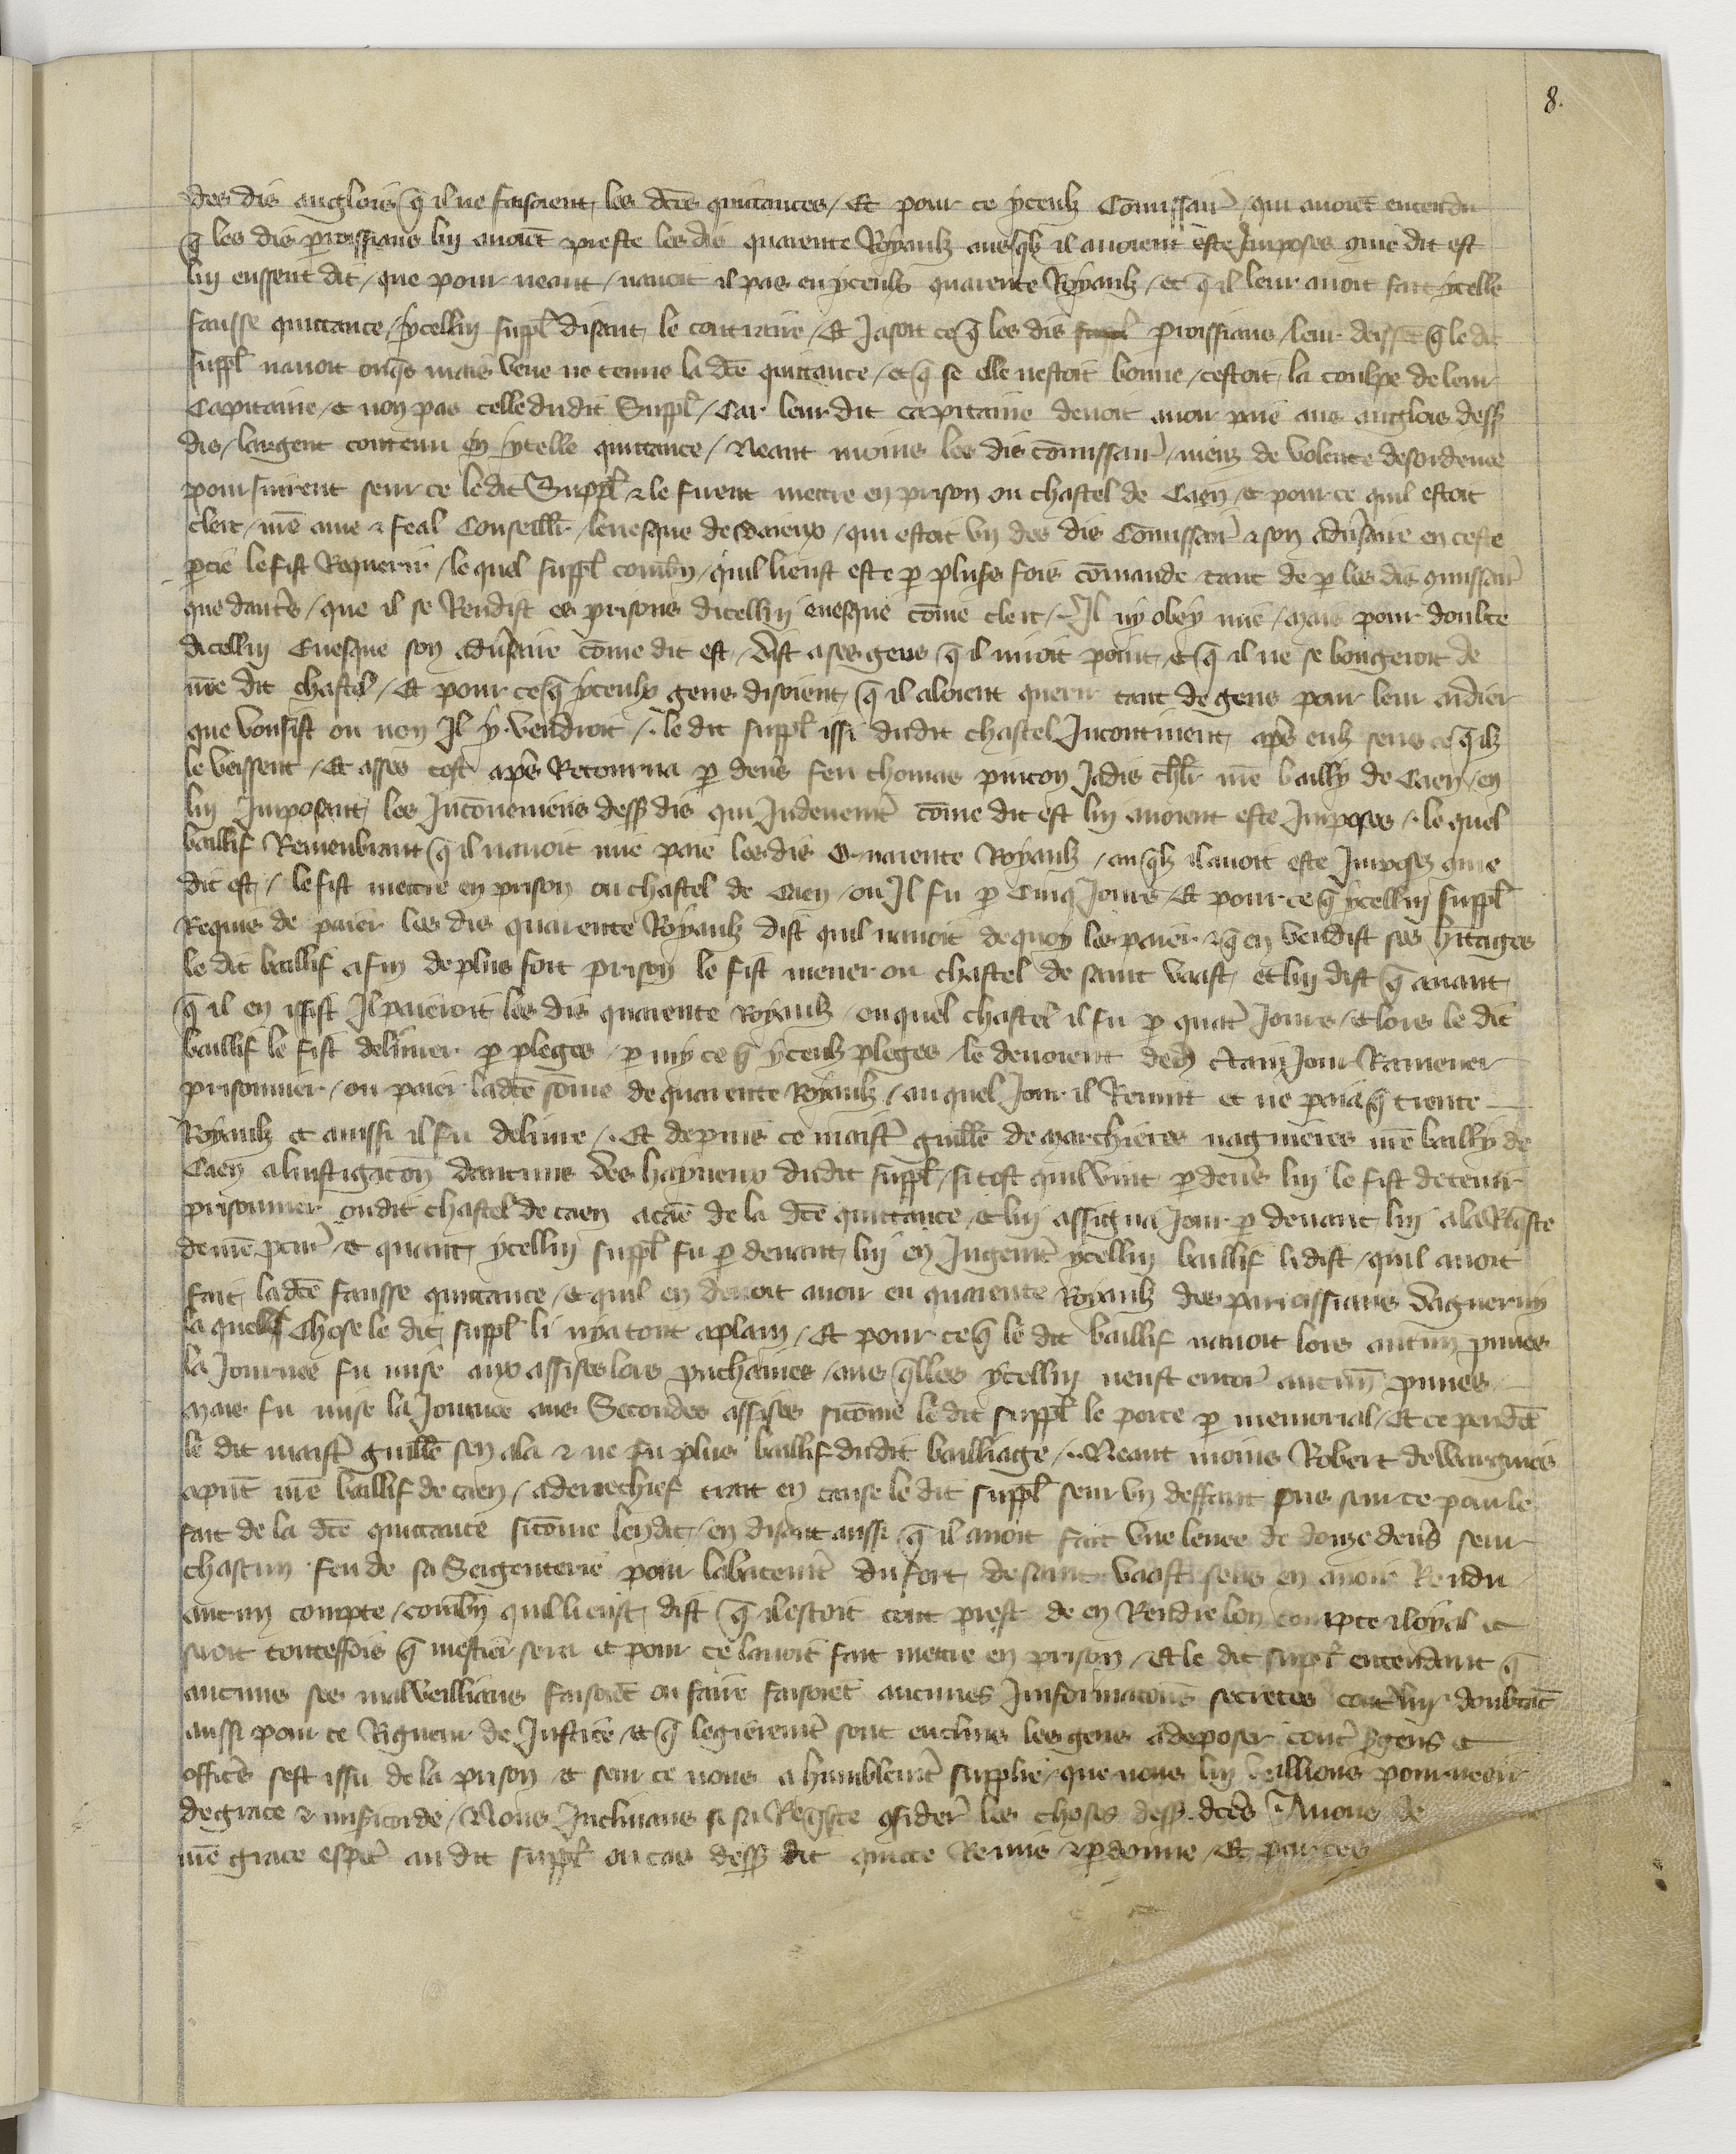 8.
des dis anglois q̃ il ne faisoient les dc̃es quittances / Et pour ce yceulx Com̃issair̃ / qui avoiẽt entendu
q̃ les dis p̃roissians luy avoiẽt preste les dis quarente Royaulx aus q̃lx il avoient este Imposes cõme dit est
luy eussent dit / que pour neant / navoit il pas eu yceulx quarente Royaulx / et q̃ il leur avoit fait ycelle
fausse quittance / ycelluy suppl̃ disant le contraire / Et Jasoit ce q̃ les dis p̃roissians / leur deissẽt q̃ le dit
suppl̃ navoit onq̃s mais veue ne tenue la dc̃e quittance / et q̃ se elle nestoit bonne / cestoit la coulpe de leur
Capitaine / et non pas celle dudit Suppl̃ / Car leur dit capitaine devoit avoir paie aus anglois dess9
dis / largent contenu en ycelle quittance / Neant moins les dis com̃issair̃ / meuz de volente desordenee
poursuirent seur ce ledit Suppl̃ & le firent mettre en prison ou chastel de Caen / et pour ce quil estoit
clerc / nr̃e ame & feal Conseill̃r / levesque de Baieux / qui estoit un des dis Com̃issair̃ & son adṽsaire en ceste
p̃tie le fist Requerir / le quel suppl̃ combiẽ / quil lieust este p̃ plus̃s fois com̃ande tant de p̃ les dis cõmissair̃
que dautr̃s / que il se Rendist es prisons dicelluy evesque com̃e clerc / Il ny obey mie / mais pour doubte
dicelluy Evesque son adṽsaire com̃e dit est / dist a ses gens q̃ il niroit point / et q̃ il ne se bougeroit de
nr̃e dit chastel / Et pour ce q̃ yceulx gens disoient q̃ il aloient querir tant de gens pour leur aidier
que vousist ou non Il y vendroit / le dit suppl̃ issi dudit chastel Incontinent apr̃s eulx sens ce q̃ ilz
le veissent / Et asses tost apr̃s Retourna p̃ devr̃s feu thomas pincon Jadis chl̃r nr̃e bailly de Caen / en
luy Imposant les Inconveniens dess9 dis qui Induemẽt com̃e dit est luy avoient este Imposes / le quel
baillif Remenbrant q̃ il navoit mie paie les dis quarente Royaulx / au q̃lx il avoit este Imposez cõme
dit est / le fist mettre en prison ou chastel de Caen / ou Il fu p̃ Cinq Jours / Et pour ce q̃ ycelluy suppl̃
Requis de paier les dis quarente Royaulx dist quil navoit de quoy les paier & q̃ en vendist ses h̃itages
le dit baillif afin de plus fort prison le fist mener ou chastel de saint vaast / et luy dist q̃ avant
q̃ il en issist Il paieroit les dis quarente royaulx / ou quel chastel il fu p̃ quatr̃ Jours / et lors le dit
baillif le fist delivrer p̃ pleges / p̃ my ce q̃ yceulx pleges / le devoient dedẽs c̃tain Jour Ramener
prisonnier / ou paier ladc̃e som̃e de quarente Royaulx / au quel Jour il Revint et ne paia q̃ trente
Royaulx et aussi il fu delivre / Et depuis ce maistr̃ guill̃e de marchieres nagueires nr̃e bailly de
Caen a linstigacõn daucuns des hayneux dudit suppl̃ / si tost quil vint p̃ devr̃s luy le fist detenir
prisonnier oudit chastel de caen a cãe de la dc̃e quittance / et luy assigna Jour p̃ devant luy a la Req̃ste
de nr̃e pcur̃ / et quant ycelluy suppl̃ fu p̃ devant luy en Jugemẽt ycelluy baillif li dist / quil avoit
fait ladc̃e fausse quittance / et quil en devoit avoir eu quarente Royaulx des paroissians daguerny
la quelle Chose le dit suppl̃ li nya tout aplain / Et pour ce q̃ le dit baillif navoit lors aucun p̃uves
la Journee fu mise aux assises lors p̃uchaines / aus q̃lles ycelluy neust encor̃ aucun̄ p̃uves
mais fu mise la Journee aus Secondes assises sicom̃e le dit suppl̃ le porte p̃ memorial / Et ce pendẽt
le dit maistr̃ guill̃e sen ala & ne fu plus baillif dudit bailliage / Neant moins Robert de Wargnies
a p̃ñt nr̃e baillif de caen / a derrechief trait en cause le dit suppl̃ seur un deffaut pris seur ce pour le
fait de la dc̃e quittance sicom̃e len dit / en disant aussi q̃ il avoit fait une levee de douze den̄s seur
chascun feu de sa Sergenterie pour labatemẽt du fort de saint vaast sens en avoir Rendu
aucun compte / combiẽ quil lieust dist q̃ il estoit tout prest de en Rendre bon compte & loyal et
seroit touteffois q̃ mestier sera et pour ce lavoit fait mettre en prison / Et le dit suppl̃ entendant q̃
aucuns ses malveillians faisoiẽt ou faire faisoiẽt aucunes Informacõns secretes contr̃ luy doubtãt
aussi pour ce Rigueur de Justice / et q̃ legieremẽt sont enclins les gens a deposer contr̃ s̃gens et
offic̃s sest issu de la prison et seur ce nous a humblemẽt supplie / que nous luy veillions pourveoir
de grace & miscorde / Nous Inclinans a sa Req̃ste cõsider̃ les choses dess9 dc̃es Avons de
nr̃e grace esp̃al au dit suppl̃ ou cas dess9 dit quitte Remis & p̃donne / Et par ces